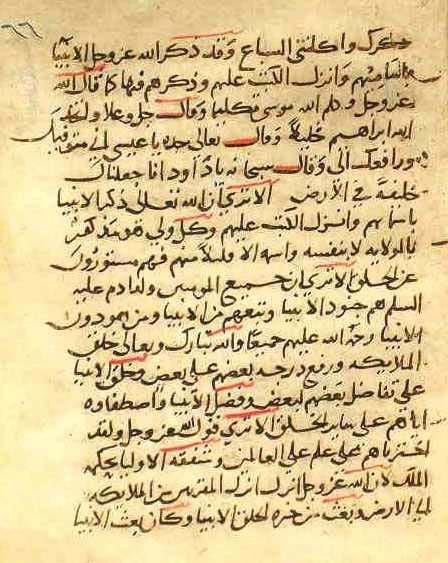 ذكرك واكلتني السباع وقد ذكر الله عز وجل الانبيا
باسمايهم وانزل الكتب عليهم وذكرهم فيها كما قال الله
عز وجل وكلم الله موسى تكليما وقال جل وعلا واتخذ
الله ابراهيم خليلا وقال تعالى جده يا عيسى اني متوفيك
ورافعك الى وقال سبحانه يا داود انا جعلناك
خليفة في الارض الا ترى ان الله تعالى ذكر الانبيا
باسمايهم وانزل الكتب عليهم وكل ولي فهو يذكر
بالولايه لا بنفسه واسمه الا قليلا منهم فهم مستورون
عن الخلق الا ترى ان جميع المومنين ولد ادم عليه
السلم هم جنود الانبيا وتبعهم من الانبيا ومن
الانبيا رحمة الله عليهم جميعا والله تبارك وتعالى خلق
الملايكه ورفع درجة بعضهم على بعض وخلق الانبيا
على تفاضل بعضهم لبعض وفضل الانبيا واصطفاوه
اياهم على ساير الخلق الا ترى قول الله عز وجل ولقد
اخترناهم على علم على العالمين الاوليا
الملك لان الله عز وجل انزل المقربين من الملايكه
الى الارض وبعث من خيرة الخلق الانبيا وكان بعث الانبيا